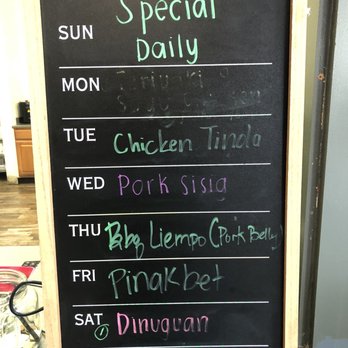 Special
SUN
Daily
MON
TUE Chicken Tinola
WED Pork Sisig
THU Bbq Liempo (Pork Belly)
FRI Pinakbet
SAT ① Dinuguan